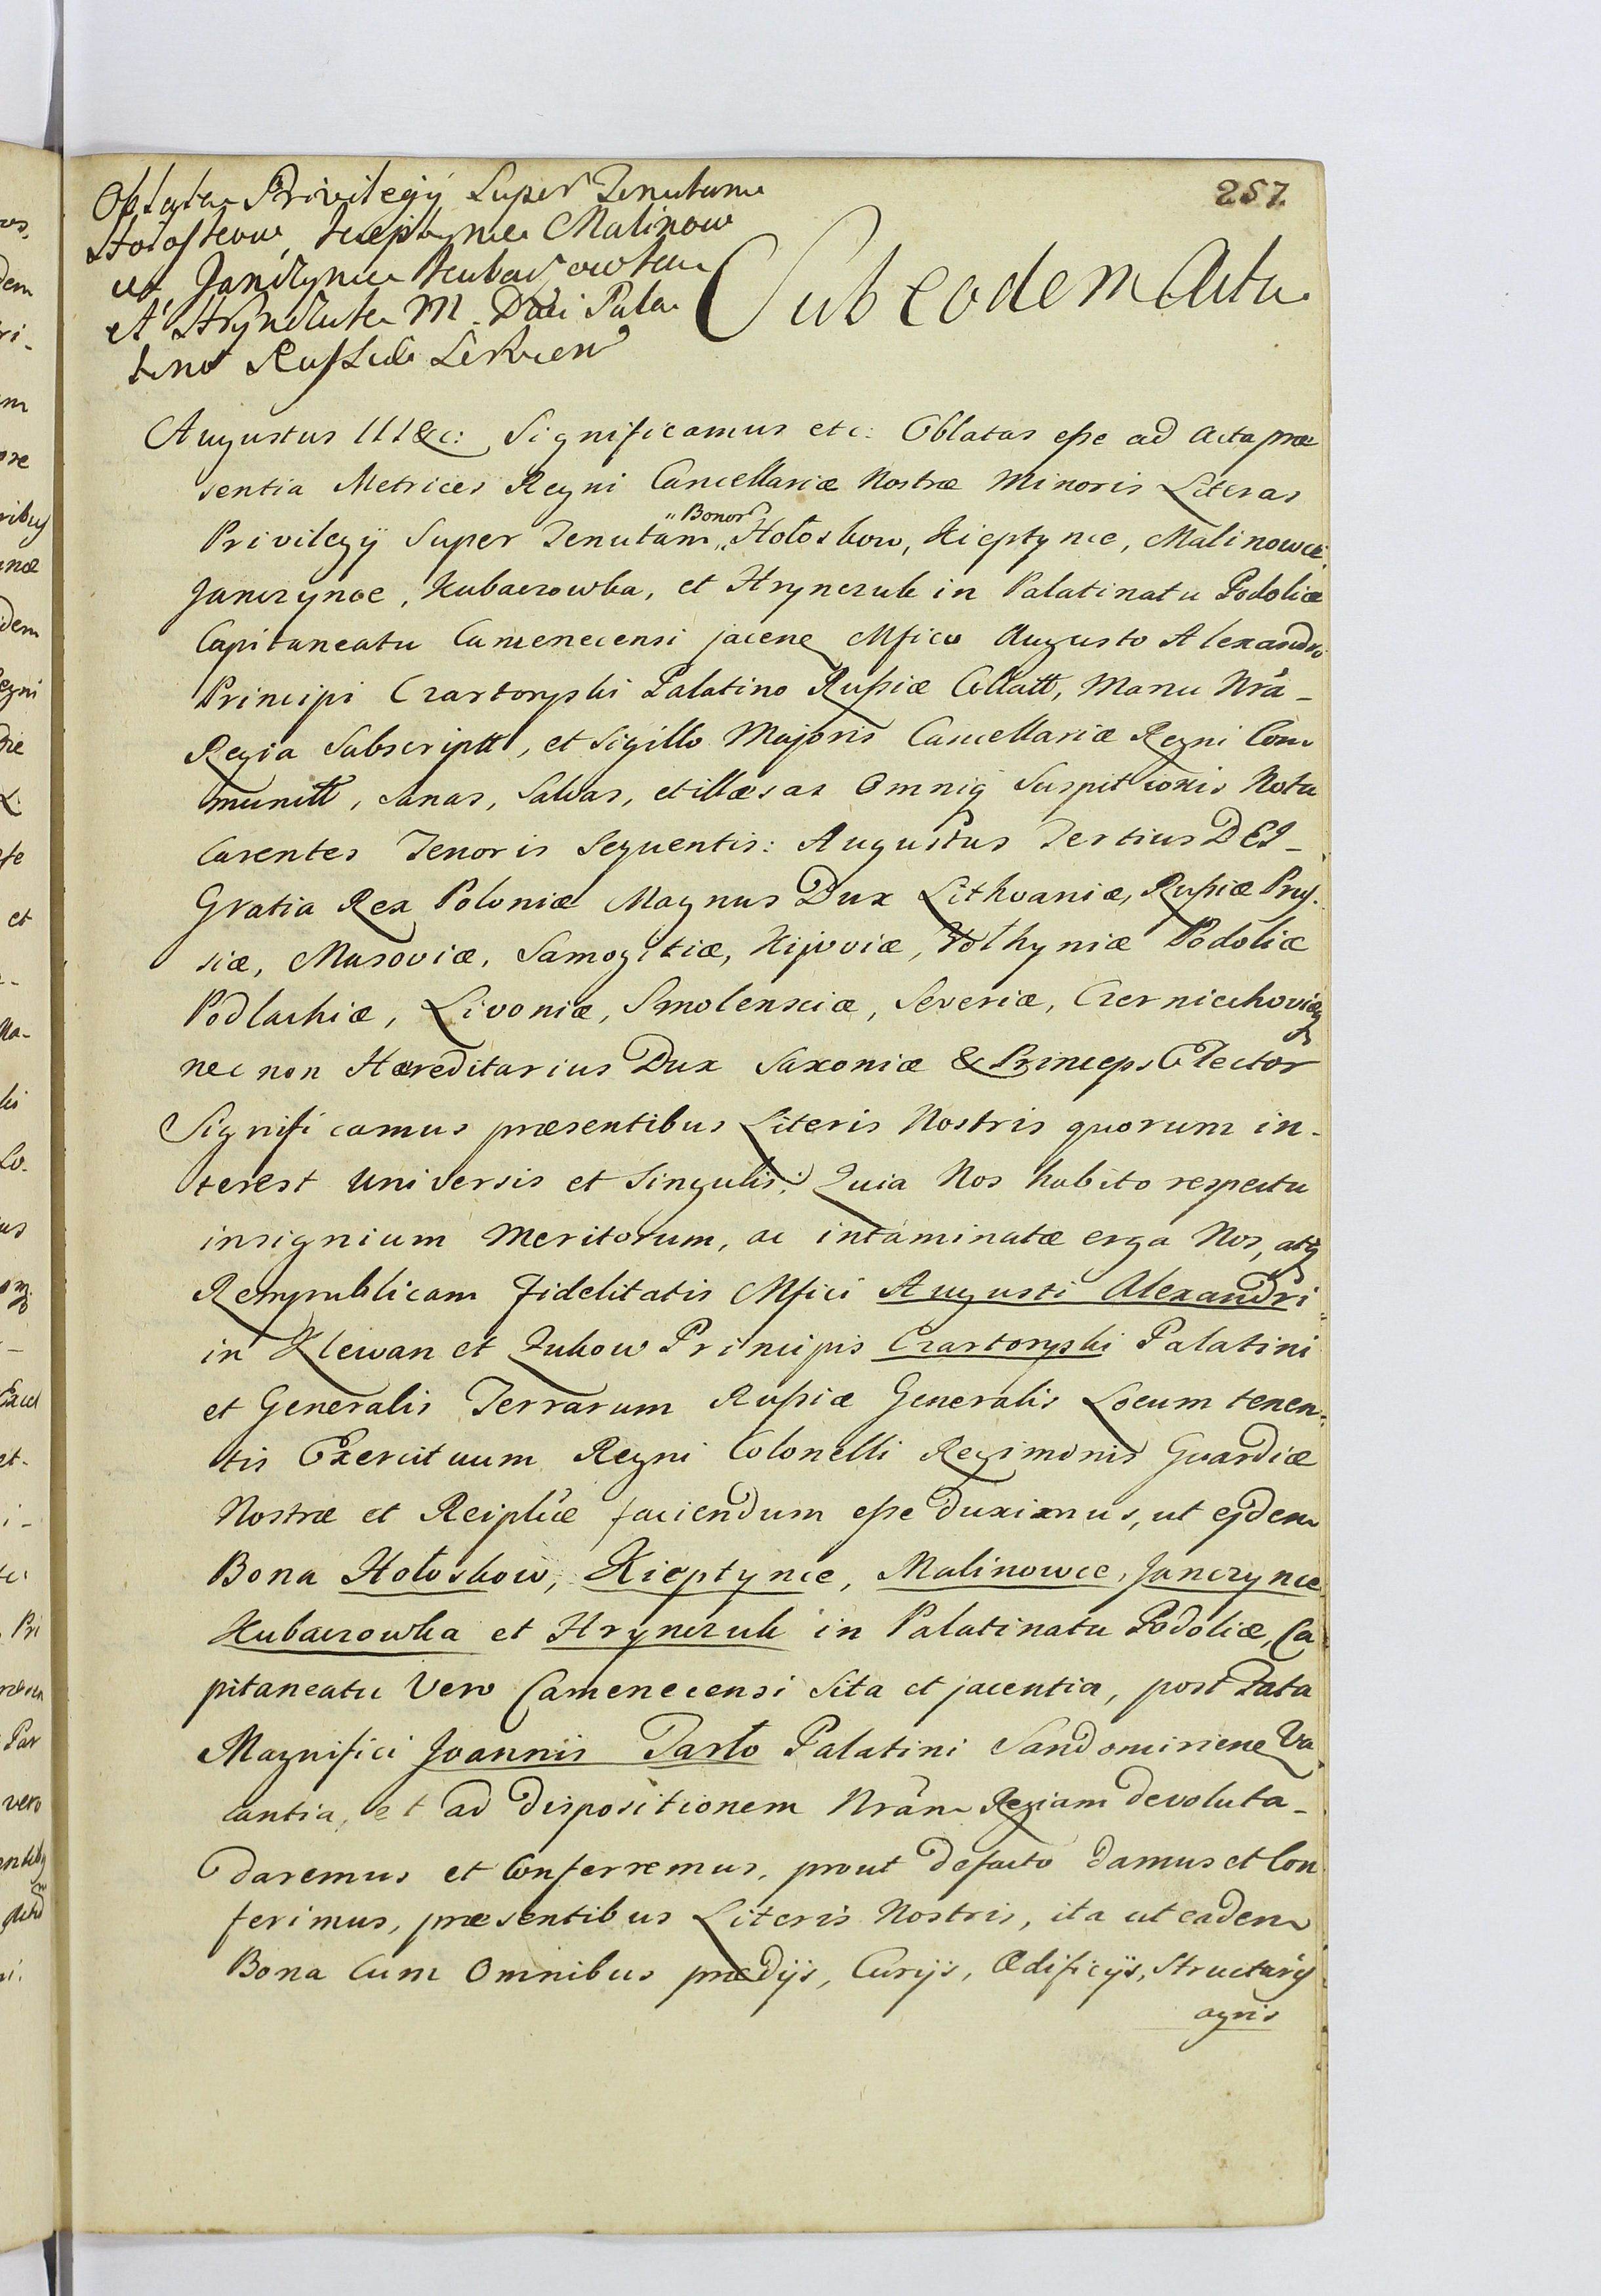 257
Oblata Privilegij Super Tenutam
Hołoskow, Kieptynce Malinow
ce Janczynce Kubaczowka
et Hrynczuk M. Duci Pala
tino Russiæ Servien
Sub eodem Actu
Augustus III &c: Significamus etc: Oblatas eße ad Acta præ
sentia Metrices Regni Cancellariæ Nostræ Minoris Literas
Privilegij Super Tenutam „Bonor„ Hołoskow, Kieptynce, Malinowce,
Janczynce, Kubaczowka, et Hrynczuk in Palatinatu Podoliæ
Capitaneatu Camenecensi jacen Mfico Augusto Alexandro
Principi Czartoryski Palatino Rußiæ Collatt, Manu Nrâ
Regia Subscriptt, et Sigillo Majoris Cancellariæ Regni Com
munitt, sanas, Salvas, et illæsas Omniq Suspitionis Nota
Carentes Tenoris Sequentis: Augustus Tertius DEI
Gratia Rex Poloniæ Magnus Dux Lithvaniæ, Rußiæ Prus
siæ, Masoviæ, Samogitiæ, Kijoviæ, Volhyniæ Podoliæ
Podlachiæ, Livoniæ, Smolensciæ, Severiæ, Czerniechoviæq
nec non Hæreditarius Dux Saxoniæ & Princeps Elector
Significamus præsentibus Literis Nostris quorum in-
terest Universis et Singulis: Quia Nos habito respectu
insignium Meritorum, ac intaminatæ erga Nos, atq
Rempublicam Fidelitatis Mfici Augusti Alexandri
in Klewan et Zukow Principis Czartoryski Palatini
et Generalis Terrarum Rußiæ Generalis Locum tenen-
tis Exercituum Regni Colonelli Regimonis Guardiæ
Nostræ et Reiplicæ faciendum eße duximus, ut ejdem
Bona Hołoskow, Kieptynce, Malinowce, Janczynce
Kubaczowka et Hrynczuk in Palatinatu Podoliæ, Ca
pitaneatu Vero Camenecensi Sita et jacentia, post Fata
Magnifici Joannis Tarło Palatini Sandomirien Va
cantia, et ad dispositionem Nrâm Regiam devoluta
daremus et Conferremus, prout defacto damus et Con
ferimus, præsentibus Literis Nostris, ita ut eadem
Bona Cum Omnibus prædijs, Curijs, Ædificijs, Structuris
agris